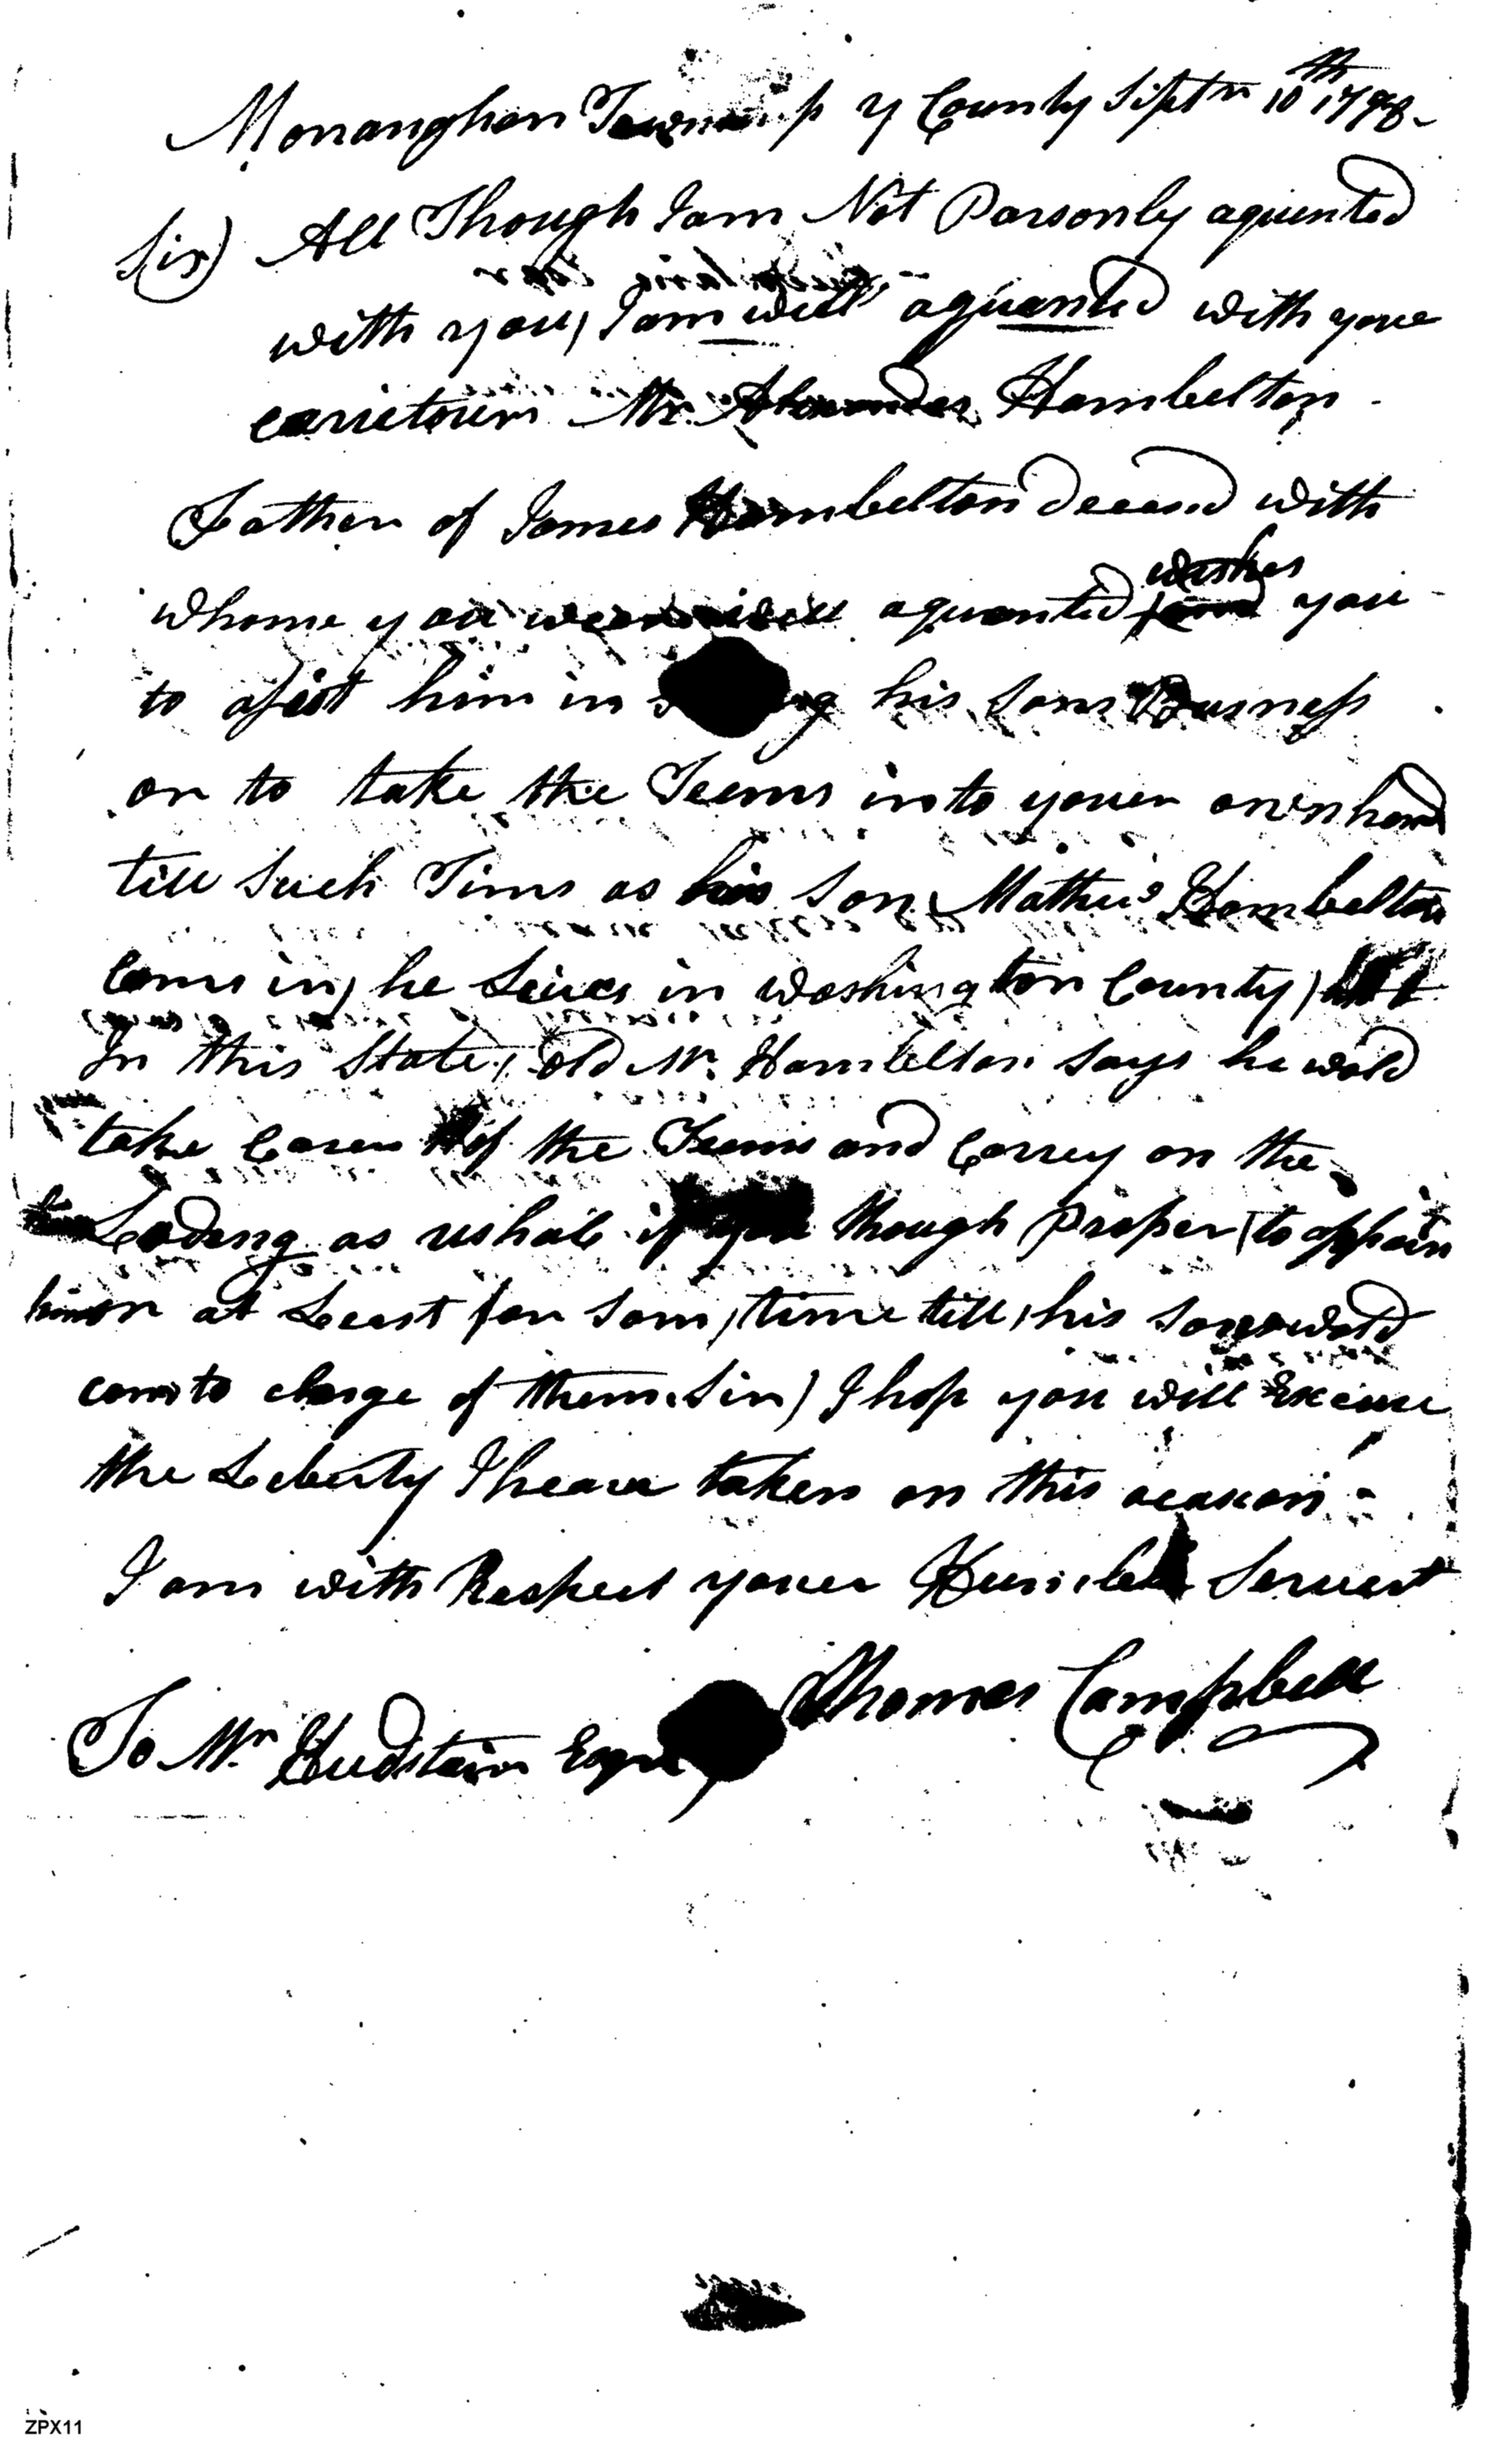 Monaughan Township y County Siptr 10th 1798
Sir) All Though I am Not Parsonly aquented
with you, I am well aquanted with youe
Mr. Alexander Hambelton
Father of James Hambelton Deceasd with
whome you weer well aquanted wishes you
to asist him in his sons Busness
or to take the Teems into youer own hand
till Such Tims as his Son Mathew Hambelton
Coms in, he Leives in Washington County,
In this State, Old Mr. Hambelton Says he wold
take Caree of the Teems and Carrey on the
Loding as ushale if you though Proper to appoin
him at Leest for Som, time till, his son wold
com to charge of them. Sir) I hop you will Excuse
the Leberty I heave taken on this ocasion
I am with Respect youer Humble Servent
Thomas Campbell
To Mr Hudstain Esqr
ZPX11